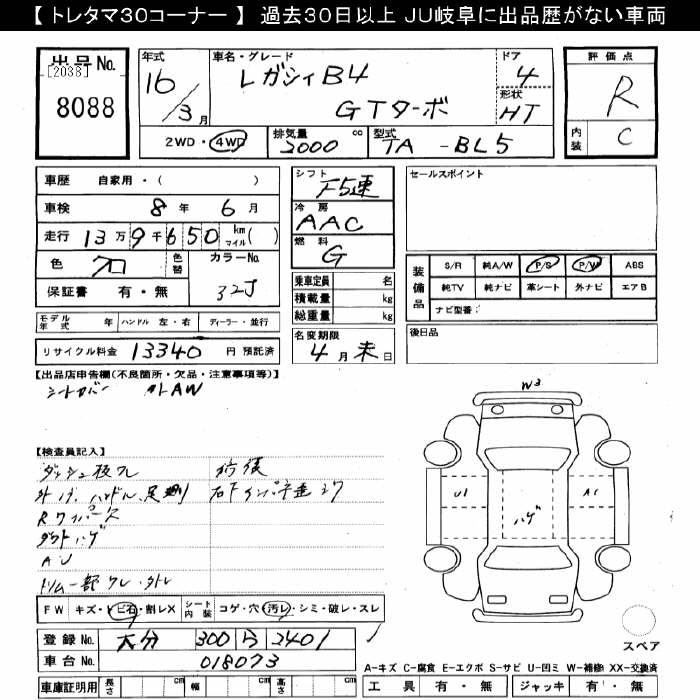 【 トレタマ30コーナー 】 過去30日以上 JU岐阜に出品歴がない車両
出品No.
[2038]
8088
年式
16/3月
車名・グレード
レガシィB4
GTターボ
ドア
4
形状
HT
2WD・4WD
排気量 2000 cc
型式 TA-BL5
評価点
R
内装 C
車歴 自家用・( )
車検 8年 6月
走行 13万9千650 km マイル( )
色 クロ
色替
カラーNo. 32J
保証書 有・無
モデル年式 年 ハンドル 左・右 ディーラー・並行
リサイクル料金 13340 円 預託済
シフト F5速
冷房 AAC
燃料 G
乗車定員 名
積載量 kg
総重量 kg
名変期限
4月末日
セールスポイント
装備品
S/R 純A/W P/S P/W ABS
純TV 純ナビ 革シート 外ナビ エアB
ナビ型番:
後日品
【出品店申告欄(不良箇所・欠品・注意事項等)】
シートカバー 外AW
【検査員記入】
ハンドル
Rワイパー
AJ
FW キズ・トビ石・割レX シート内装 コゲ・穴・汚レ・シミ・破レ・スレ
登録No. 大分 300 ら 2401
車台No. 018073
車庫証明用 長さ cm 幅 cm 高さ cm
W3
U1
ハゲ
A1
スペア
A-キズ C-腐食 E-エクボ S-サビ U-凹ミ W-補修 XX-交換済
工具 有・無 ジャッキ 有・無